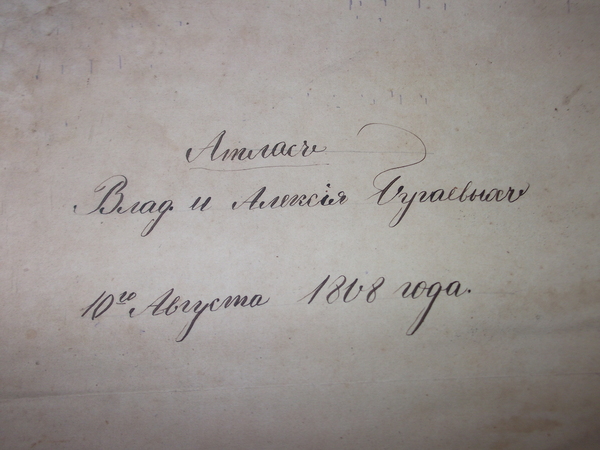 Атласъ
Влад и Алексія Бугаевыхъ
10го Августа 1868 года.